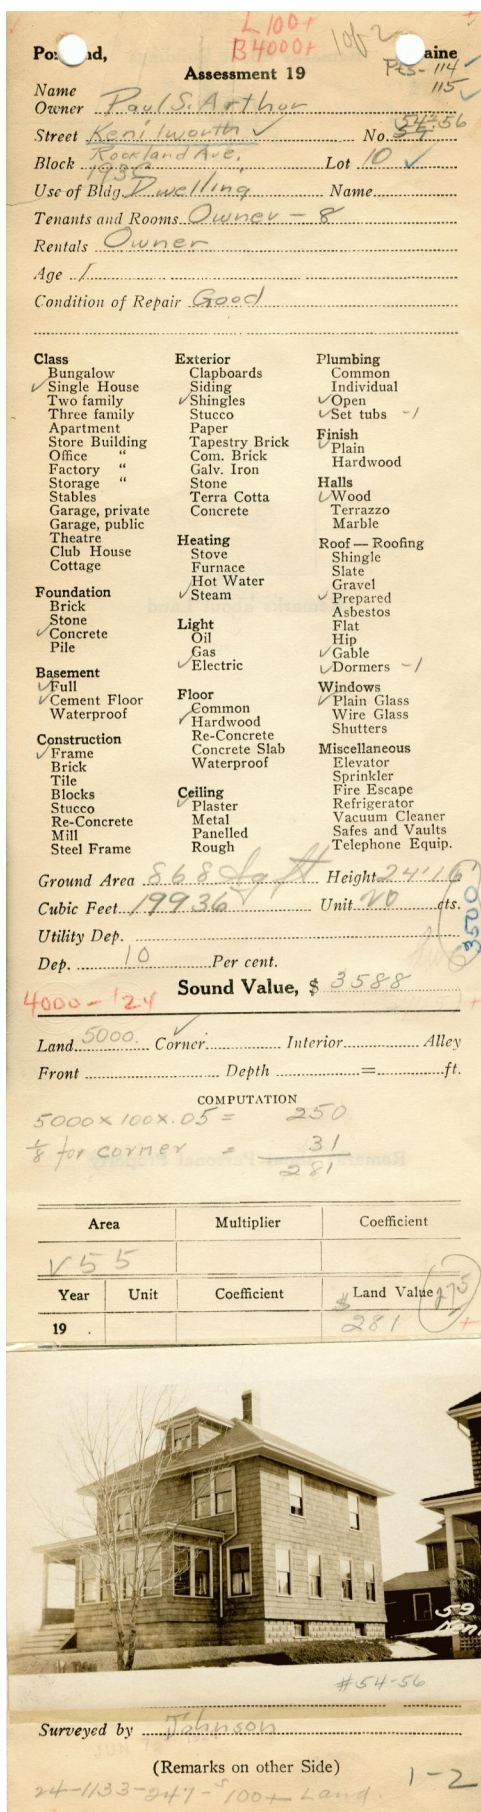 L 100+
B 4000+ 1 of 2
Po land, aine
Assessment 19 Pts- 114
115
Name
Owner Paul S. Arthur
54-56
Street Kenilworth ✓ No. 59
Rockland Ave.
Block Lot 10 ✓
Use of Bldg Dwelling Name
Tenants and Rooms Owner - 8
Rentals Owner
Age 1
Condition of Repair Good
Class
Bungalow
✓ Single House
Two family
Three family
Apartment
Store Building
Office "
Factory "
Storage "
Stables
Garage, private
Garage, public
Theatre
Club House
Cottage
Foundation
Brick
Stone
✓ Concrete
Pile
Basement
✓ Full
✓ Cement Floor
Waterproof
Construction
✓ Frame
Brick
Tile
Blocks
Stucco
Re-Concrete
Mill
Steel Frame
Exterior
Clapboards
Siding
✓ Shingles
Stucco
Paper
Tapestry Brick
Com. Brick
Galv. Iron
Stone
Terra Cotta
Concrete
Heating
Stove
Furnace
Hot Water
✓ Steam
Light
Oil
Gas
✓ Electric
Floor
Common
✓ Hardwood
Re-Concrete
Concrete Slab
Waterproof
Ceiling
✓ Plaster
Metal
Panelled
Rough
Plumbing
Common
Individual
✓ Open
✓ Set tubs - 1
Finish
✓ Plain
Hardwood
Halls
✓ Wood
Terrazzo
Marble
Roof — Roofing
Shingle
Slate
Gravel
✓ Prepared
Asbestos
Flat
Hip
✓ Gable
✓ Dormers - 1
Windows
✓ Plain Glass
Wire Glass
Shutters
Miscellaneous
Elevator
Sprinkler
Fire Escape
Refrigerator
Vacuum Cleaner
Safes and Vaults
✓ Telephone Equip.
Ground Area 868 sq ft Height 24' 16
Cubic Feet 19936 Unit 20 cts.
3500
Utility Dep.
Dep. 10 Per cent.
Sound Value, $ 3588
4000 - '24
Land 5000 Corner ✓ Interior Alley
Front Depth = ft.
COMPUTATION
5000 x 100 x .05 = 250
1/8 for corner = 31
281
Area Multiplier Coefficient
V55
Year Unit Coefficient Land Value 275
19 . $ 281 +
59
#54-56
Surveyed by Johnson
(Remarks on other Side)
1-2
24-1133-247-S 100+ Land.